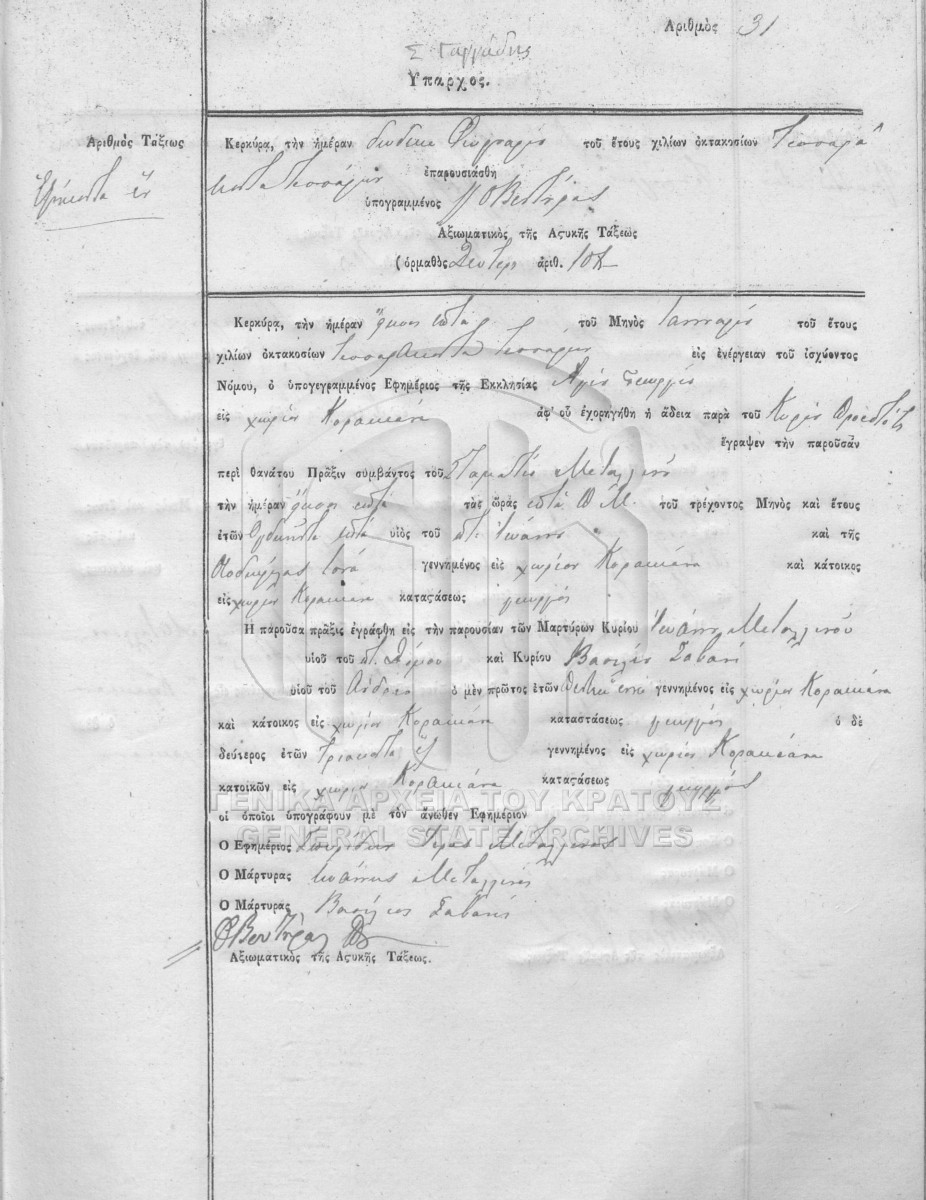 Αριθμὸς 31
Σ Γαγγάδης
Υπαρχος.
Αριθμὸς Τάξεως
Ἑξήκοντα ἕν
Κερκύρα, τὴν ἡμέραν δώδεκα Φευραρίου τοῦ ἔτους χιλίων ὀκτακοσίων τεσσαρά
κοντα τεσσάρων ἐπαρουσιάσθη
ὑπογραμμένος Βεντύρας
Αξιωματικὸς τῆς Αςυκῆς Τάξεως
(ὁρμαθὸς Δευτερ ἀριθ. 101
Κερκύρα, τὴν ἡμέραν εἴκοσι ἑπτά τοῦ Μηνὸς Ιαννουαρίου τοῦ ἔτους
χιλίων ὀκτακοσίων τεσσαράκοντα τεσσάρων εἰς ἐνέργειαν τοῦ ἰσχύοντος
Νόμου, ὁ ὑπογεγραμμένος Εφημέριος τῆς Εκκλησίας Αγίου Γεωργίου
εἰς χωρίον Κορακιάνα ἀφ' οὗ ἐχορηγήθη ἡ ἄδεια παρὰ τοῦ Κυρίου Προεστότος
ἔγραψεν τὴν παροῦσαν
περὶ θανάτου Πρᾶξιν συμβάντος τοῦ Σταματίου Μεταλληνοῦ
τὴν ἡμέραν εἴκοσι ἑπτά τὰς ὥρας ἑπτὰ Π. Μ. τοῦ τρέχοντος Μηνὸς καὶ ἔτους
ἐτῶν Ογδοήντα ἑπτά υἱὸς τοῦ ποτ. Ἰωάννου καὶ τῆς
γεννημένος εἰς χωρίον Κορακιάνα καὶ κάτοικος
εἰς χωρίον Κορακιάνα καταςάσεως γεωργός
Η παροῦσα πρᾶξις ἐγράφθη εἰς τὴν παρουσίαν τῶν Μαρτύρων Κυρίου Ἰωάννου Μεταλληνοῦ
υἱοῦ τοῦ ποτ. καὶ Κυρίου Βασιλείου Σαβανῆ
υἱοῦ τοῦ Ανδρέου ὁ μὲν πρῶτος ἐτῶν γεννημένος εἰς χωρίον Κορακιάνα
καὶ κάτοικος εἰς χωρίον Κορακιάνα καταστάσεως γεωργός ὁ δὲ
δεύτερος ἐτῶν τριάκοντα ἕξ γεννημένος εἰς χωρίον Κορακιάνα
κατοικῶν εἰς χωρίον Κορακιάνα καταςάσεως γεωργός
οἱ ὁποῖοι ὑπογράφουν μὲ τὸν ἄνωθεν Εφημέριον
ΓΕΝΙΚΑ ΑΡΧΕΙΑ ΤΟΥ ΚΡΑΤΟΥΣ
GENERAL STATE ARCHIVES
Ο Εφημέριος Σπυρίδων Ιερεύς Μεταλληνός
Ο Μάρτυρας Ιωάννης Μεταλληνός
Ο Μάρτυρας Βασίλειος Σαβανής
Βεντύρας
Αξιωματικὸς τῆς Αςυκῆς Τάξεως.